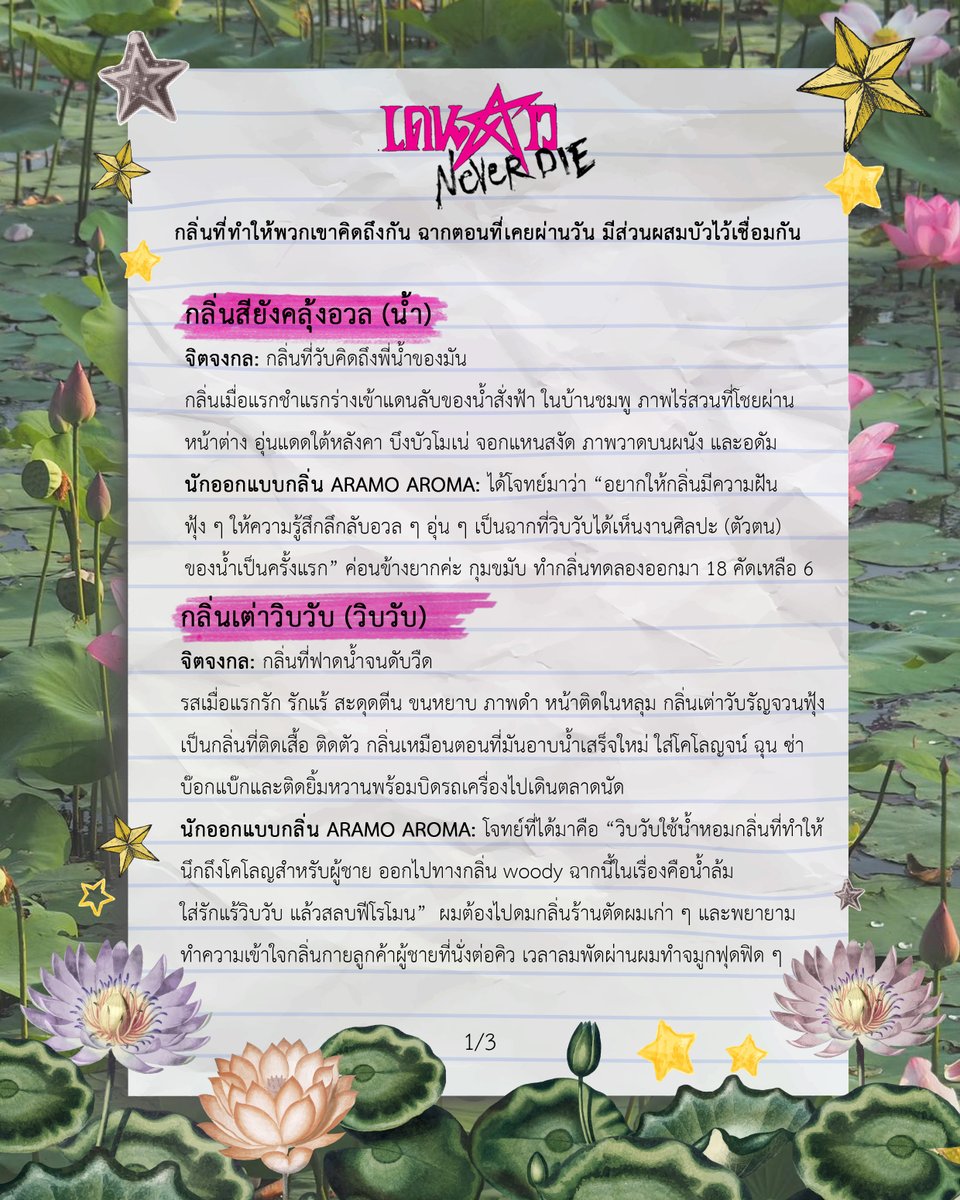 เดนดาว
NEVER DIE
กลิ่นที่ทำให้พวกเขาคิดถึงกัน ฉากตอนที่เคยผ่านวัน มีส่วนผสมบัวไว้เชื่อมกัน
กลิ่นสียังคลุ้งอวล (น้ำ)
จิตจงกล: กลิ่นที่วับคิดถึงพี่น้ำของมัน
กลิ่นเมื่อแรกชำแรกร่างเข้าแดนลับของน้ำสั่งฟ้า ในบ้านชมพู ภาพไร่สวนที่โชยผ่าน
หน้าต่าง อุ่นแดดใต้หลังคา บึงบัวโมเน่ จอกแหนสงัด ภาพวาดบนผนัง และอดัม
นักออกแบบกลิ่น ARAMO AROMA: ได้โจทย์มาว่า “อยากให้กลิ่นมีความฝัน
ฟุ้ง ๆ ให้ความรู้สึกลึกลับอวล ๆ อุ่น ๆ เป็นฉากที่วิบวับได้เห็นงานศิลปะ (ตัวตน)
ของน้ำเป็นครั้งแรก” ค่อนข้างยากค่ะ กุมขมับ ทำกลิ่นทดลองออกมา 18 คัดเหลือ 6
กลิ่นเต่าวิบวับ (วิบวับ)
จิตจงกล: กลิ่นที่ฟาดน้ำจนดับวืด
รสเมื่อแรกรัก รักแร้ สะดุดตีน ขนหยาบ ภาพดำ หน้าติดในหลุม กลิ่นเต่าวับรัญจวนฟุ้ง
เป็นกลิ่นที่ติดเสื้อ ติดตัว กลิ่นเหมือนตอนที่มันอาบน้ำเสร็จใหม่ ใส่โคโลญจน์ ฉุน ซ่า
บ๊อกแบ๊กและติดยิ้มหวานพร้อมบิดรถเครื่องไปเดินตลาดนัด
นักออกแบบกลิ่น ARAMO AROMA: โจทย์ที่ได้มาคือ “วิบวับใช้น้ำหอมกลิ่นที่ทำให้
นึกถึงโคโลญสำหรับผู้ชาย ออกไปทางกลิ่น woody ฉากนี้ในเรื่องคือน้ำล้ม
ใส่รักแร้วิบวับ แล้วสลบฟีโรโมน” ผมต้องไปดมกลิ่นร้านตัดผมเก่า ๆ และพยายาม
ทำความเข้าใจกลิ่นกายลูกค้าผู้ชายที่นั่งต่อคิว เวลาลมพัดผ่านผมทำจมูกฟุดฟิด ๆ
1/3